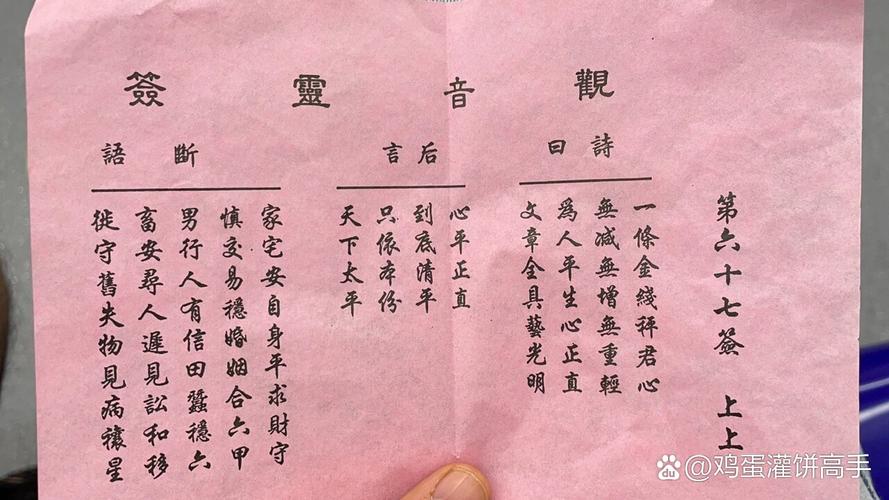 觀音靈簽
第六十七簽 上上
詩曰
一條金綫秤君心
無减無增無重輕
爲人平生心正直
文章全具藝光明
后言
心平正直
到底清平
只依本份
天下太平
断語
家宅安自身平求財守
慎交易穩婚姻合六甲
男行人有信田蠶穩六
畜安尋人遲見訟和移
徙守舊失物見病禳星
Baidu @鸡蛋灌饼高手